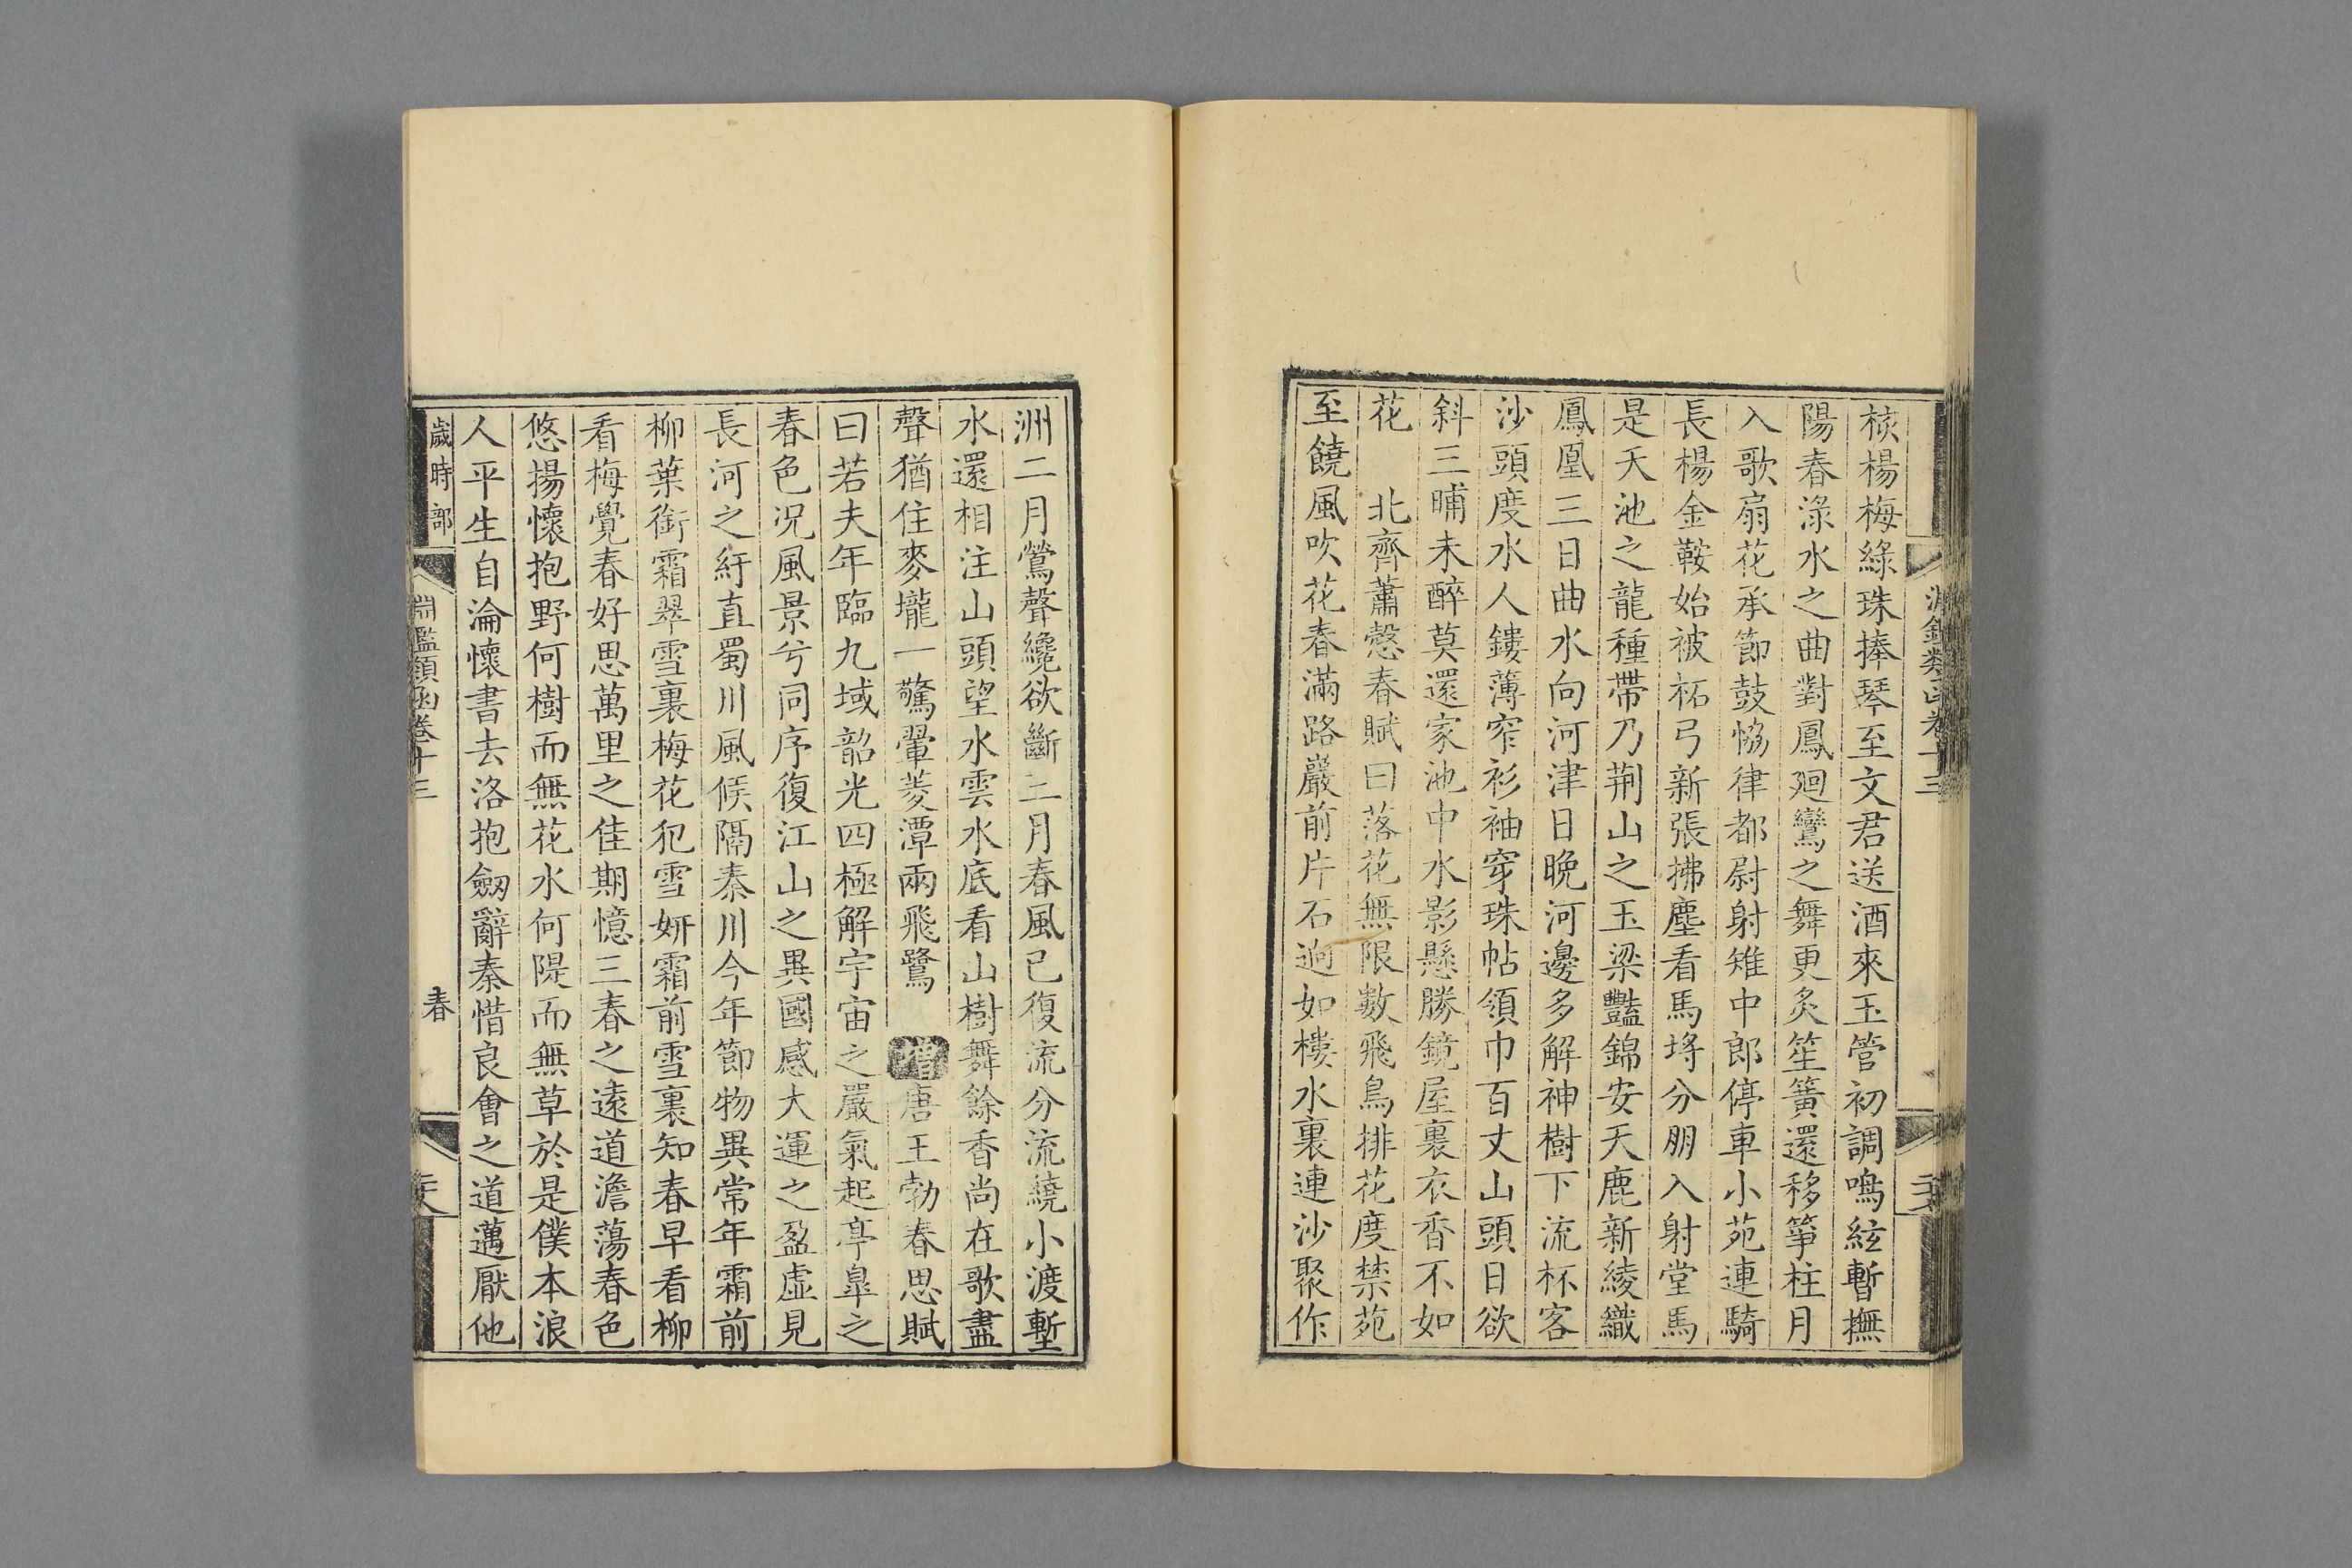 核楊梅綠珠捧琴至文君送酒來玉管初調鳴絃暫撫
陽春淥水之曲對鳳廻鸞之舞更炙笙簧還移箏柱月
入歌扇花承節鼓恊律都尉射雉中郎停車小苑連騎
長楊金鞍始被柘弓新張拂塵看馬埒分朋入射堂馬
是天池之龍種帶乃荆山之玉梁豔錦安天鹿新綾織
鳳凰三日曲水向河津日晚河邊多解神樹下流杯客
沙頭度水人鏤薄窄衫袖穿珠帖領巾百丈山頭日欲
斜三晡未醉莫還家池中水影懸勝鏡屋裏衣香不如
花　北齊蕭慤春賦曰落花無限數飛鳥排花度禁苑
至饒風吹花春滿路巖前片石逈如樓水裏連沙聚作
洲二月鶯聲纔欲斷三月春風已復流分流繞小渡塹
水還相注山頭望水雲水底看山樹舞餘香尚在歌盡
聲猶住麥壠一驚翬菱潭兩飛鷺　增唐王勃春思賦
曰若夫年臨九域韶光四極解宇宙之嚴氣起亭臯之
春色況風景兮同序復江山之異國感大運之盈虛見
長河之紆直蜀川風候隔秦川今年節物異常年霜前
柳葉銜霜翠雪裏梅花犯雪妍霜前雪裏知春早看柳
看梅覺春好思萬里之佳期憶三春之遠道澹蕩春色
悠揚懷抱野何樹而無花水何隄而無草於是僕本浪
人平生自淪懷書去洛抱劒辭秦惜良會之道邁厭他
歲時部
淵鑑類函卷十三
春